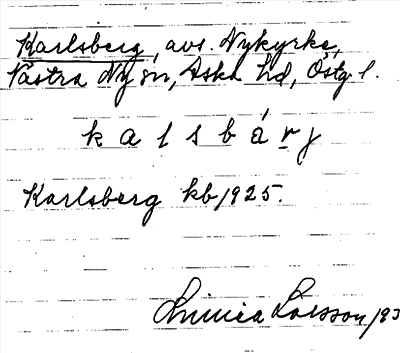 Karlsberg, avs. Nykyrka,
Västra Ny sn, Aska hd, Östg l.
k a l s b á r j
Karlsberg kb 1925.
Linnea Larsson 193